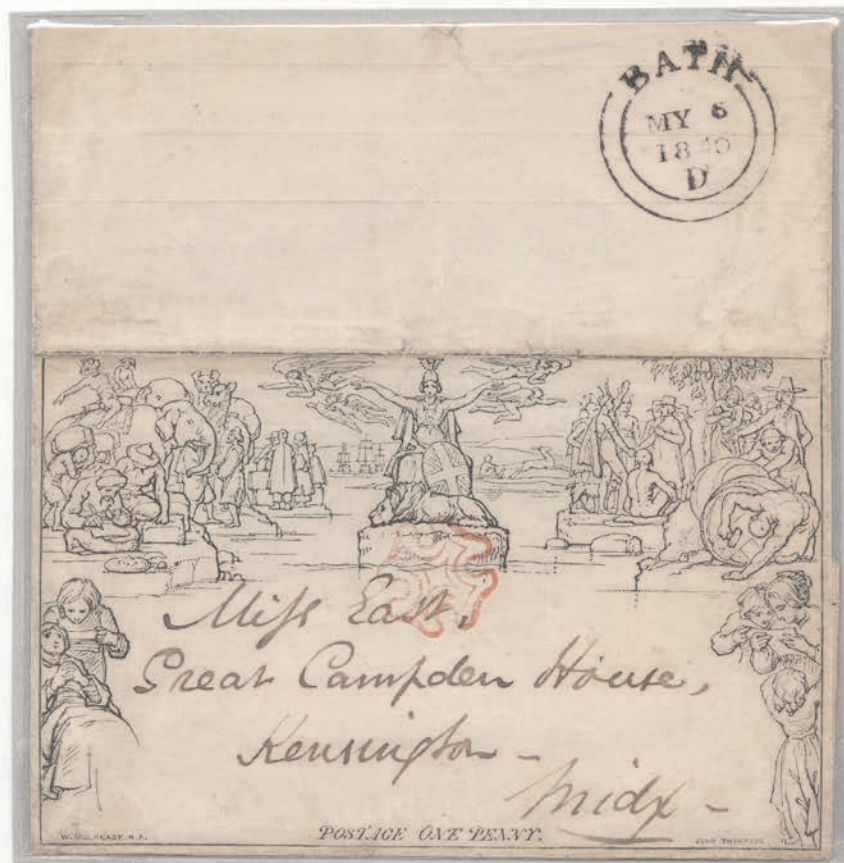 BATH
MY 6
1840
D
Miſs East,
Great Campden House,
Kensington -
Midx -
W. MULREADY. R.A.
POSTAGE ONE PENNY.
JOHN THOMPSON